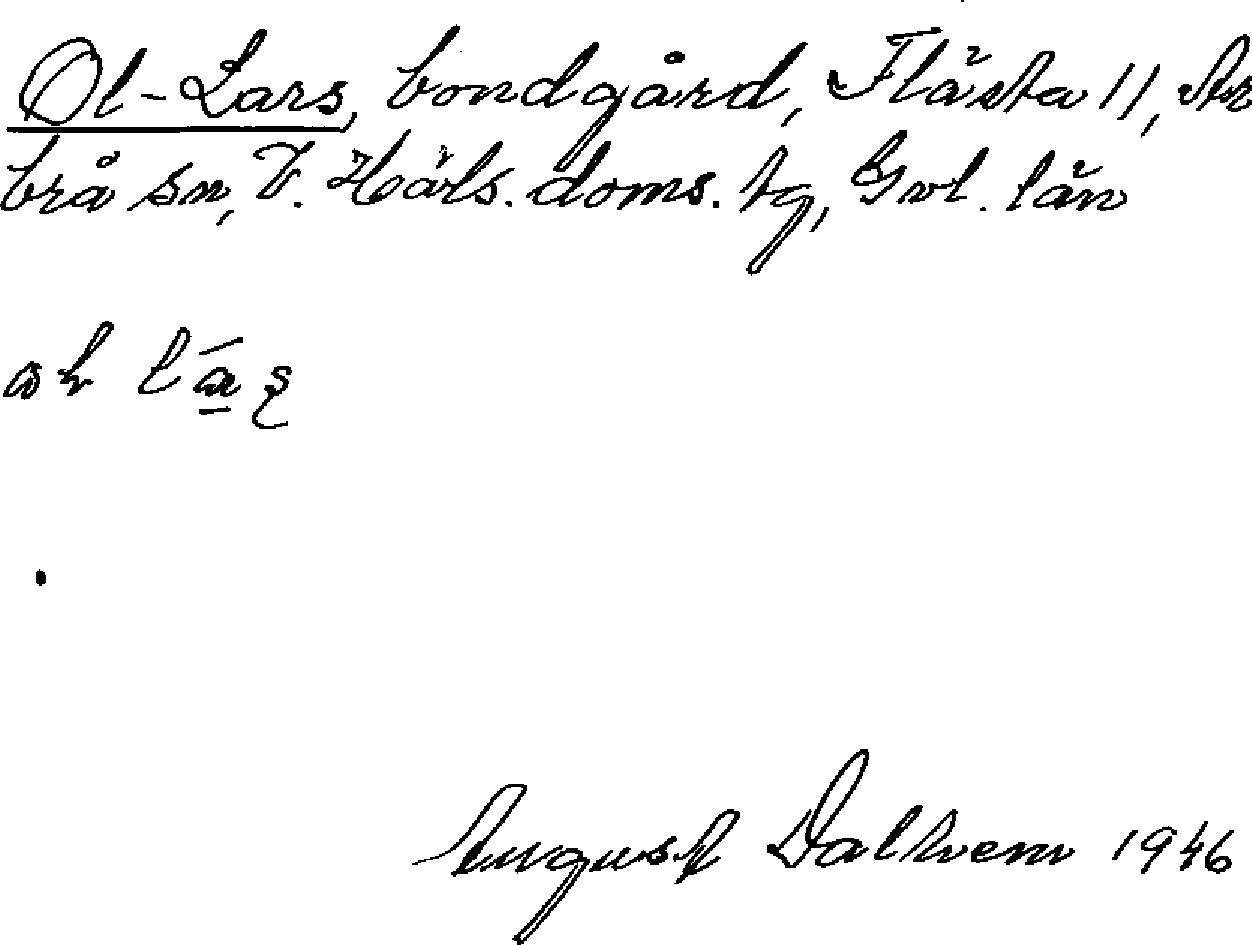 Ol-Lars, bondgård, Flästa 11, Ar
brå sn, V. Häls. doms. tg, Gvl. län
August Dalkvem 1946